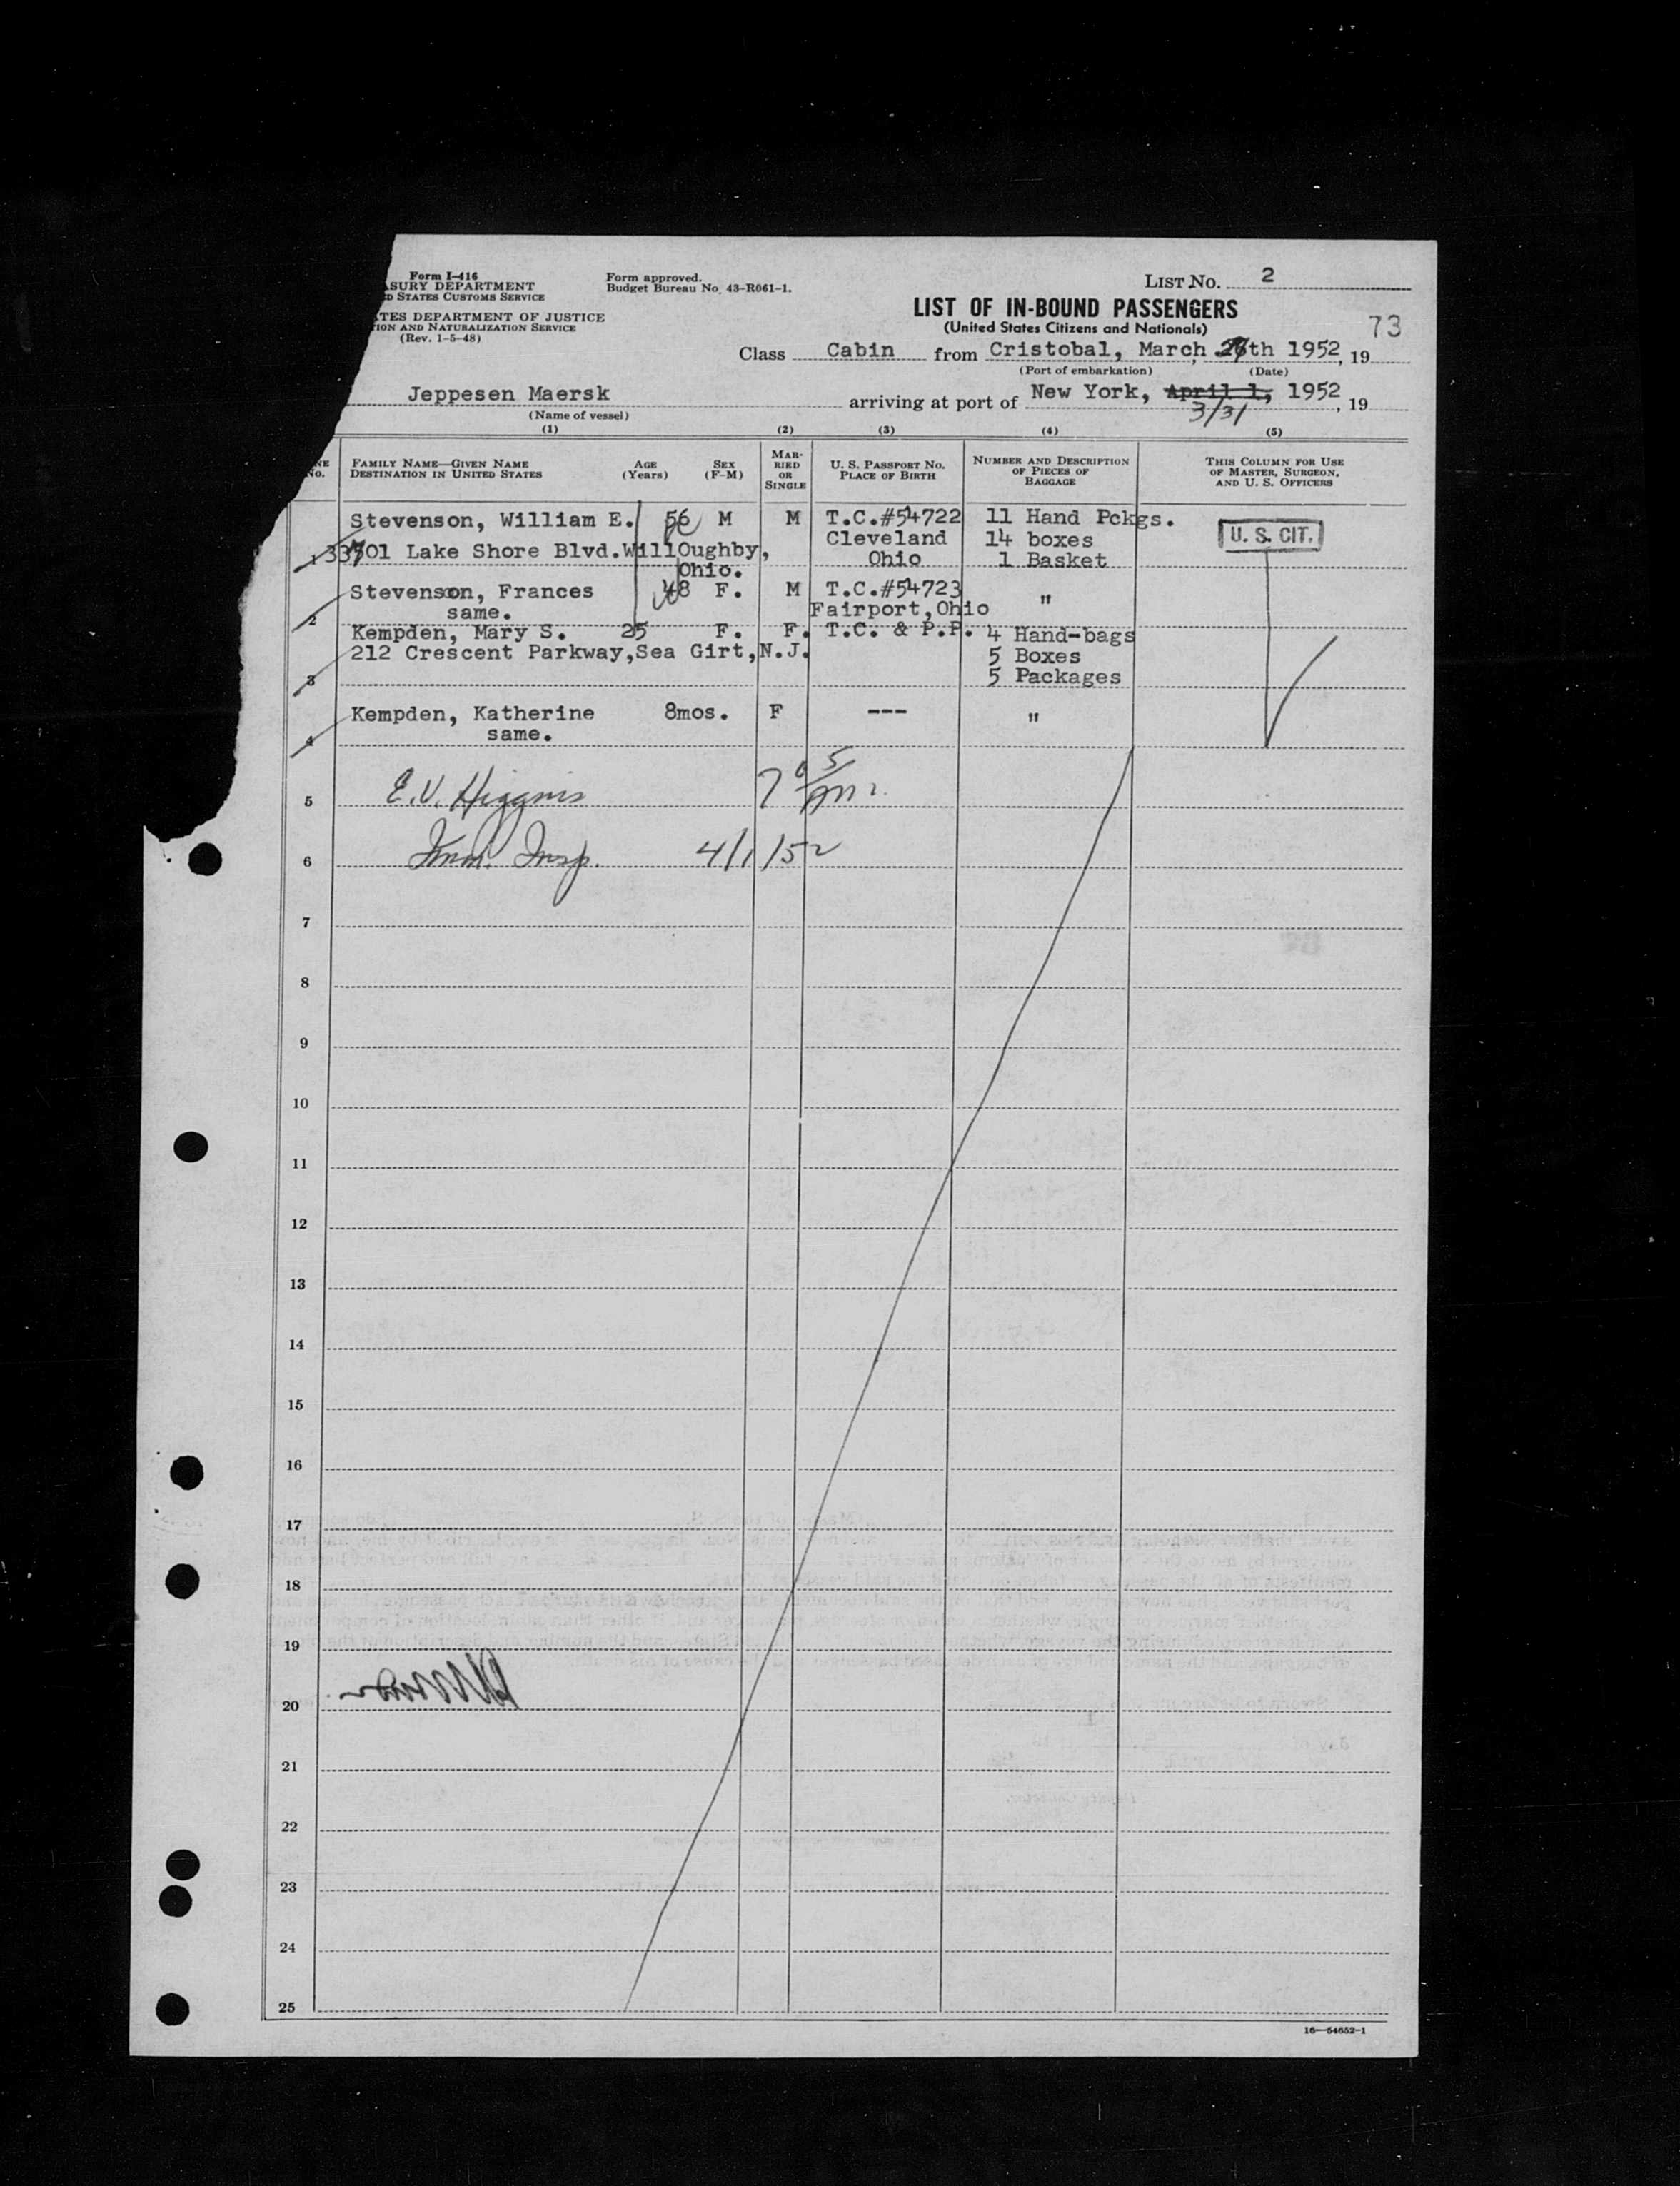 Form I-416
ASURY DEPARTMENT
D STATES CUSTOMS SERVICE
TES DEPARTMENT OF JUSTICE
TION AND NATURALIZATION SERVICE
(Rev. 1-5-48)
Form approved.
Budget Bureau No. 43-R061-1.
LIST No. 2
LIST OF IN-BOUND PASSENGERS
(United States Citizens and Nationals)
73
Class Cabin from Cristobal, March, th 1952, 19
(Port of embarkation) (Date)
Jeppesen Maersk arriving at port of New York, April 1, 1952, 19
3/31
(Name of vessel)
(1) (2) (3) (4) (5)
NE No. FAMILY NAME—GIVEN NAME DESTINATION IN UNITED STATES AGE (Years) SEX (F-M) MARRIED OR SINGLE U. S. PASSPORT NO. PLACE OF BIRTH NUMBER AND DESCRIPTION OF PIECES OF BAGGAGE THIS COLUMN FOR USE OF MASTER, SURGEON, AND U. S. OFFICERS
Stevenson, William E. 56 M M T.C.#54722 11 Hand Pckgs.
U. S. CIT.
1 33701 Lake Shore Blvd.WillOughby, Cleveland 14 boxes
Ohio. Ohio 1 Basket
Stevenson, Frances 48 F. M T.C.#54723 "
2 same. Fairport,Ohio
Kempden, Mary S. 25 F. F. T.C. & P.P. 4 Hand-bags
212 Crescent Parkway,Sea Girt,N.J. 5 Boxes
3 5 Packages
Kempden, Katherine 8mos. F --- "
4 same.
5 E.V. Higgins
6 Imm. Insp. 4/1/52
7
8
9
10
11
12
13
14
15
16
17
18
19
20
21
22
23
24
25
16—54652-1